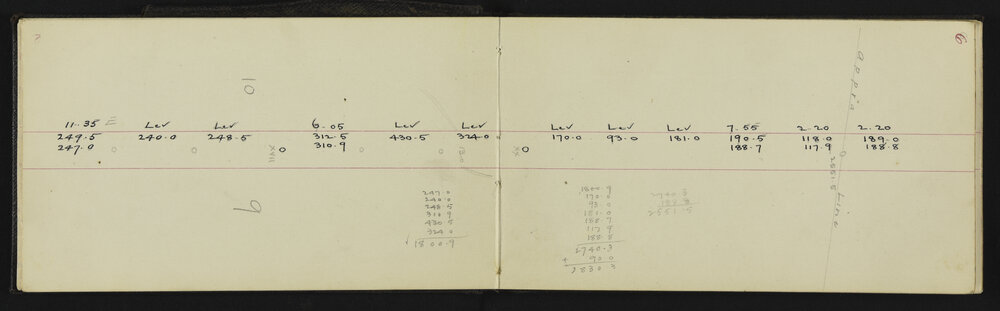 11.35 Lev Lev 6.05 Lev Lev
249.5 240.0 248.5 312.5 430.5 324.0
247.0 310.9
XVIII
10
9
247 0
240 0
248 5
310 9
430 5
324 0
1800.9
6
Lev Lev Lev 7.55 2.20 2.20
170.0 93.0 181.0 190.5 118.0 189.0
188.7 117.9 188.8
XX
1800 9
170 0
93 0
181 0
188 7
117 9
188 8
2740.3
+ 90 0
2830 3
2551 5
Line